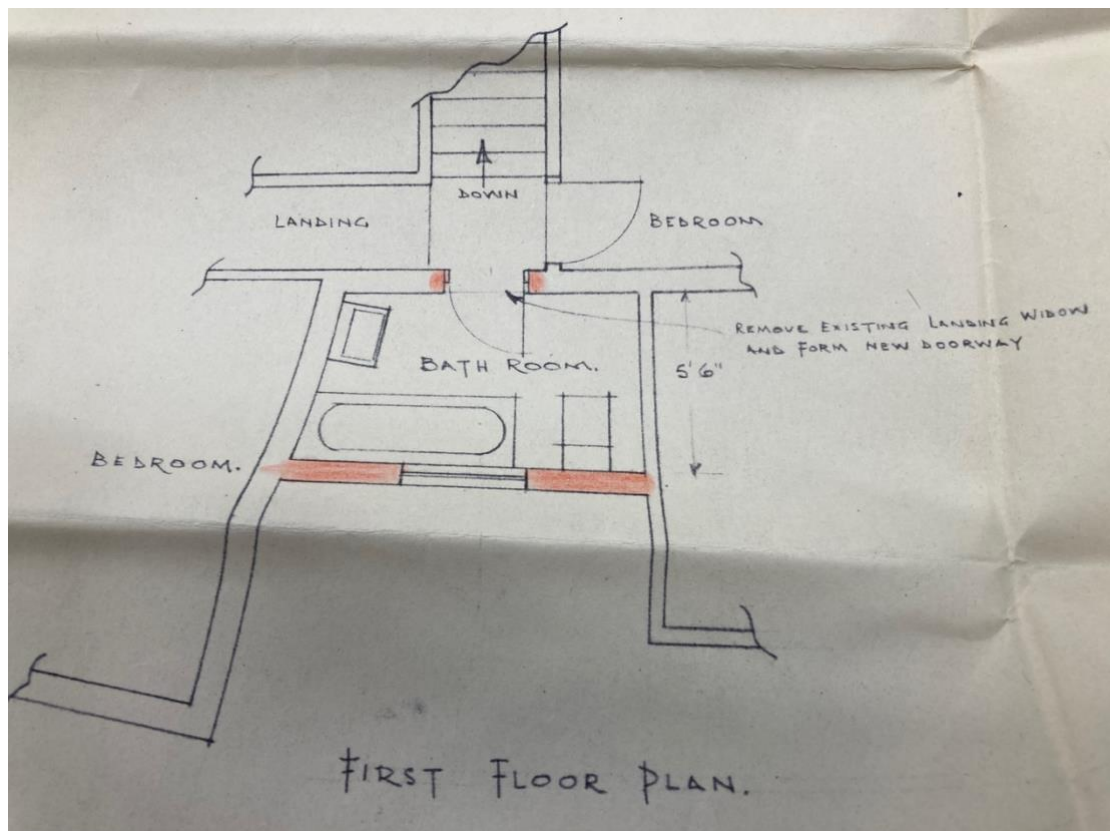 DOWN
LANDING
BEDROOM
REMOVE EXISTING LANDING WIDOW
AND FORM NEW DOORWAY
BATH ROOM.
5'6"
BEDROOM.
FIRST FLOOR PLAN.